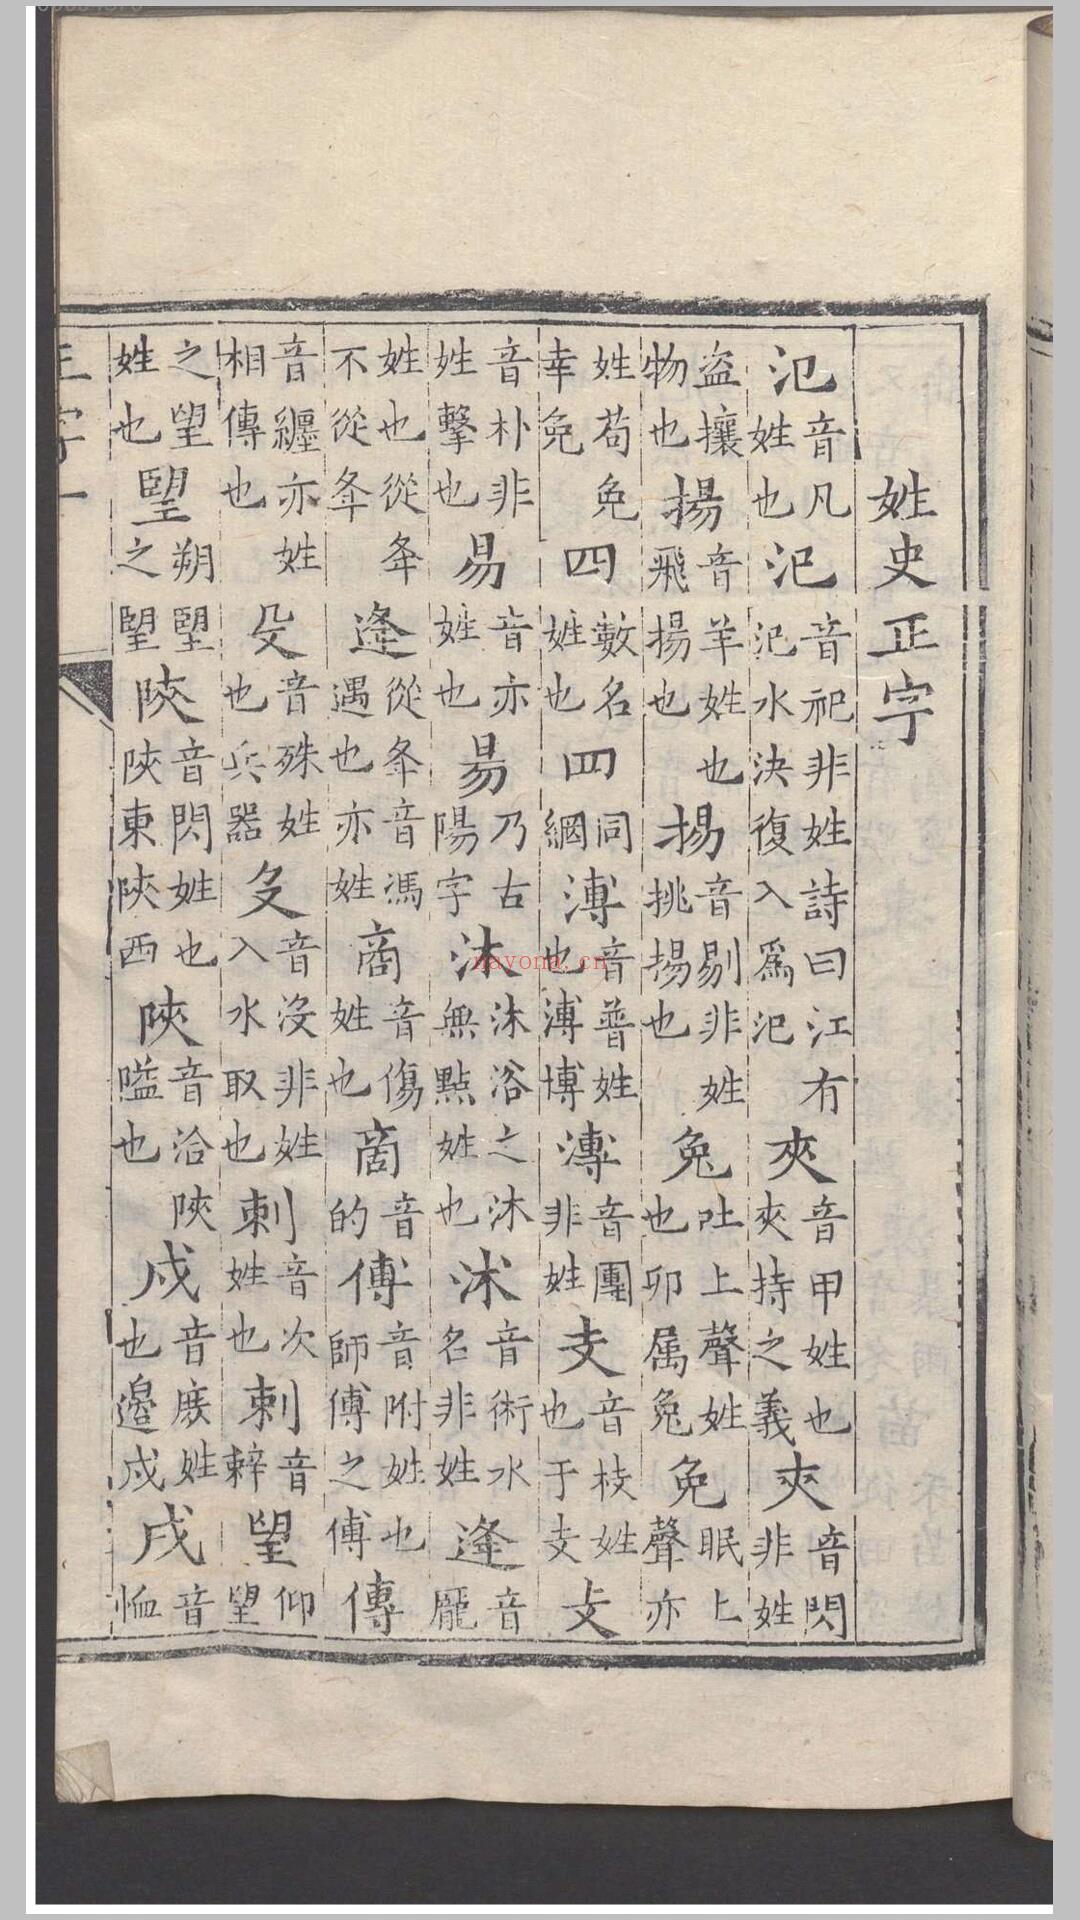 姓史正字
氾音凡姓也汜音祀非姓詩曰江有汜水決復入爲汜夾音甲姓也夾持之義㚒音閃非姓
盜攘物也揚音羊姓也飛揚也掦音剔非姓挑掦也兔吐上聲姓也卯属兔免眠上聲亦
姓苟免幸免四數名姓也罒同網溥音普姓也溥博漙音團非姓支音枝姓也于支攴
音朴非姓擊也易音亦姓也昜乃古陽字沐沐浴之沐無點姓也沭音術水名非姓逄音龐
姓也從夅不從夆逢從夆音馮遇也亦姓商音傷姓也啇音的傅音附姓也師傅之傅傳
音纏亦姓相傳也殳音殊姓也兵器𠬛音没非姓入水取也刺音次姓也剌音辢望仰望
之望姓也朢朔朢之望陝音閃姓也陝東陝西陜音洽陜隘也戍音庶姓也邊戍戌音恤
nayona.cn